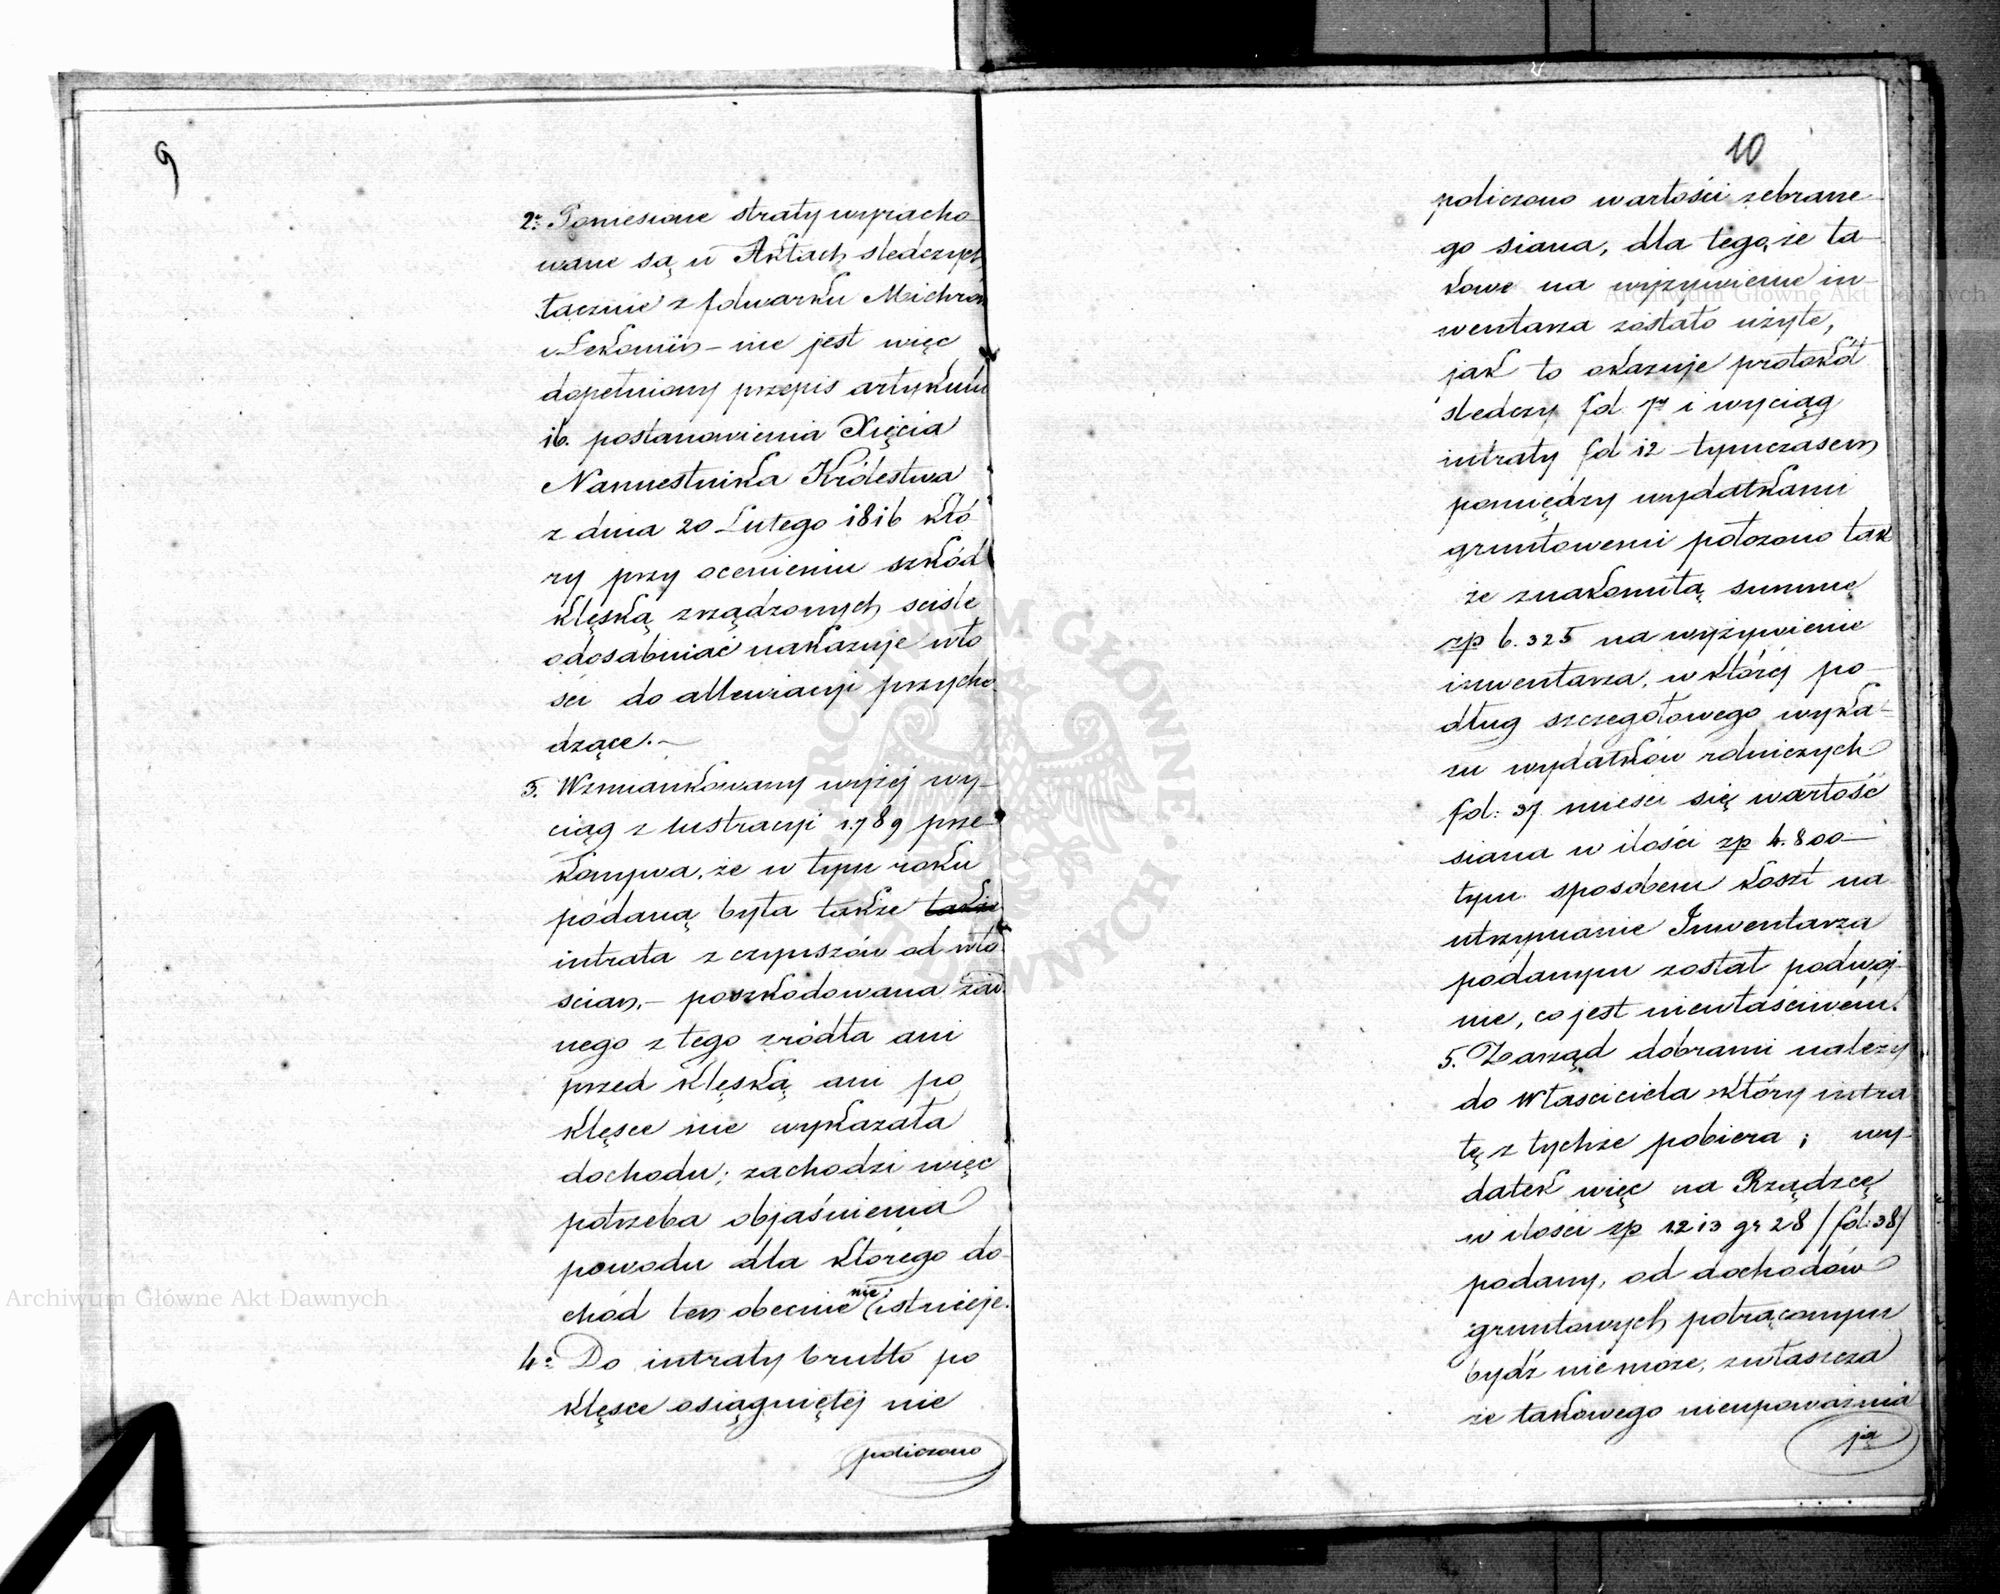 9
2. Poniesione straty wyracho
wane są w Aktach sledczych
łącznie z folwarku Michrow
i Lekomin – nie jest więc
dopełniony przepis artykułu
16. postanowienia Xięcia
Namiestnika Królestwa
z dnia 20 Lutego 1816 któ
ry przy ocenieniu szkód
klęską zrządzonych scisle
odosabniać nakazuje wło
ści do allewiacyi przycho
dzące. –
3. Wzmiankowany wyżej wy-
ciąg z lustracyi 1789 prze-
konywa, że w tym roku
podaną była także także
intrata z czynszów od wło
scian, – poszkodowana żad
nego z tego zródła ani
przed klęską ani po
klęsce nie wykazała
dochodu; zachodzi więc
potrzeba objaśnienia
powodu dla którego do-
chód ten obecnie nie istnieje.
4. Do intraty brutto po
klęsce osiągniętej nie
policzono
10
policzono wartości zebrane-
go siana, dla tego, że ta-
kowe na wyżywienie in-
wentarza zostało użyte,
jak to okazuje protokół
sledczy fol 7 i wyciąg
intraty fol 12 – tymczasem
pomiędzy wydatkami
gruntowemi położono tak
że znakomitą summę
zp 6.325 na wyżywienie
inwentarza, w której po-
dług szczegołowego wyka-
zu wydatków rolniczych
fol: 37 miesci się wartość
siana w ilości zp 4.800 –
tym sposobem koszt na
utrzymanie Inwentarza
podanym został podwój-
nie, co jest niewłaściwém.
5. Zarząd dobrami należy
do Własciciela który intra
tę z tychże pobiera; wy-
datek więc na Rządzcę
w ilości zp 1213 gr 28 /fol: 38/
podany, od dochodów
gruntowych potrąconym
bydź nie może, zwłaszcza
że takowego nieupoważnia
ją
Archiwum Główne Akt Dawnych
Archiwum Główne Akt Dawnych
ARCHIWUM GŁÓWNE AKT DAWNYCH